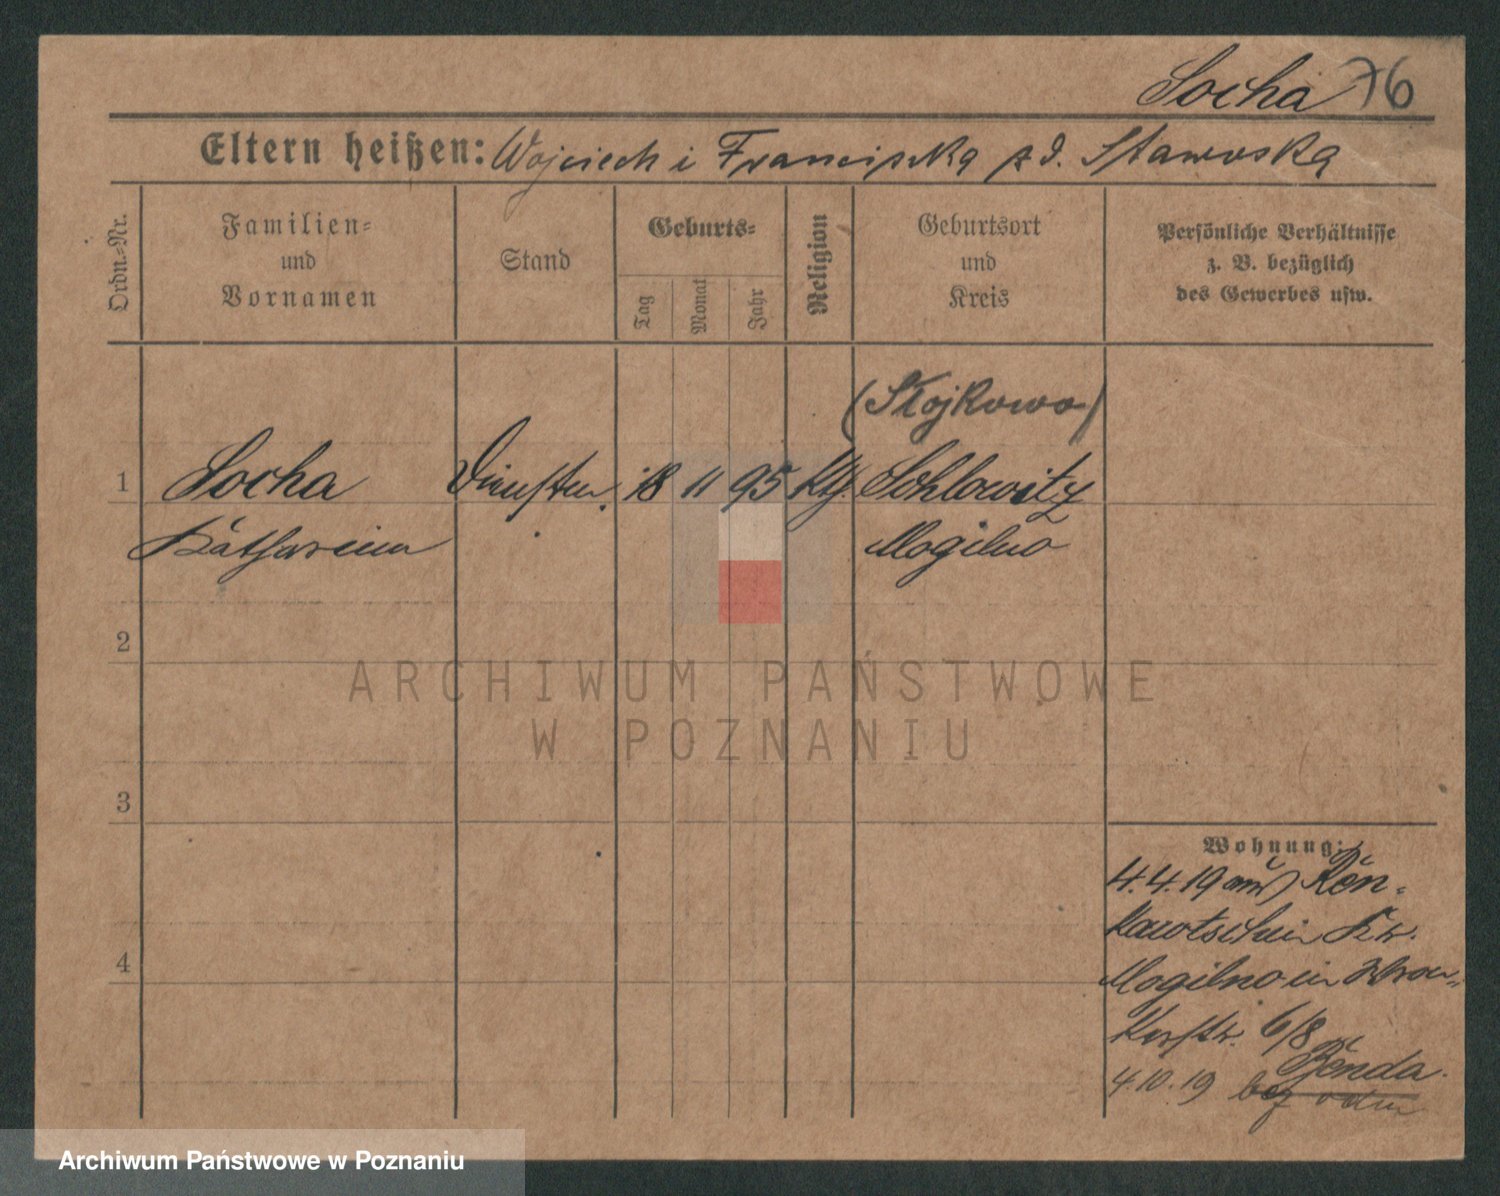 Socha 76
Eltern heißen: Wojciech i Franciszka z d. Stawoska
Ordn.-Nr.
Familien-
und
Vornamen
Stand
Geburts-
Tag
Monat
Jahr
Religion
Geburtsort
und
Kreis
Persönliche Verhältnisse
z. B. bezüglich
des Gewerbes usw.
(Stojkowo)
1 Socha 18 11 95 Kth. Schlowitz
Katharina Mogilno
2
3
4
Wohnung:
4.4.19 aus
Kr.
Mogilno in
Kerstr. 6/8
4.10.19 bez
ARCHIWUM PAŃSTWOWE
W POZNANIU
Archiwum Państwowe w Poznaniu